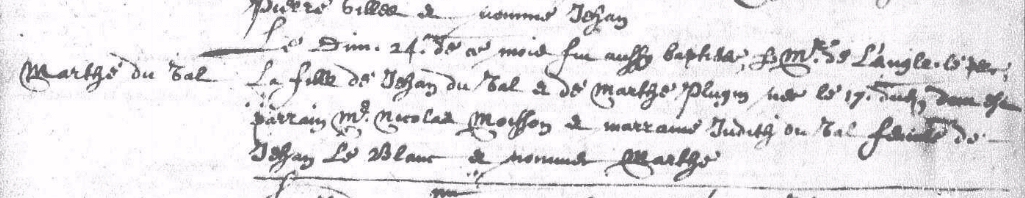 Pierre Gilles & nommé Jehan
Le Dim. 24.e de ce mois fut aussy baptisée, p. Mr. de L'angle. le per.
Marthe du Val
La fille de Jehan du Val & de Marthe Plugin née le 17. dud. dont est
parrain Me. Nicolas Moisson & marraine Judith du Val femme de
Jehan Le Blanc & nommée Marthe